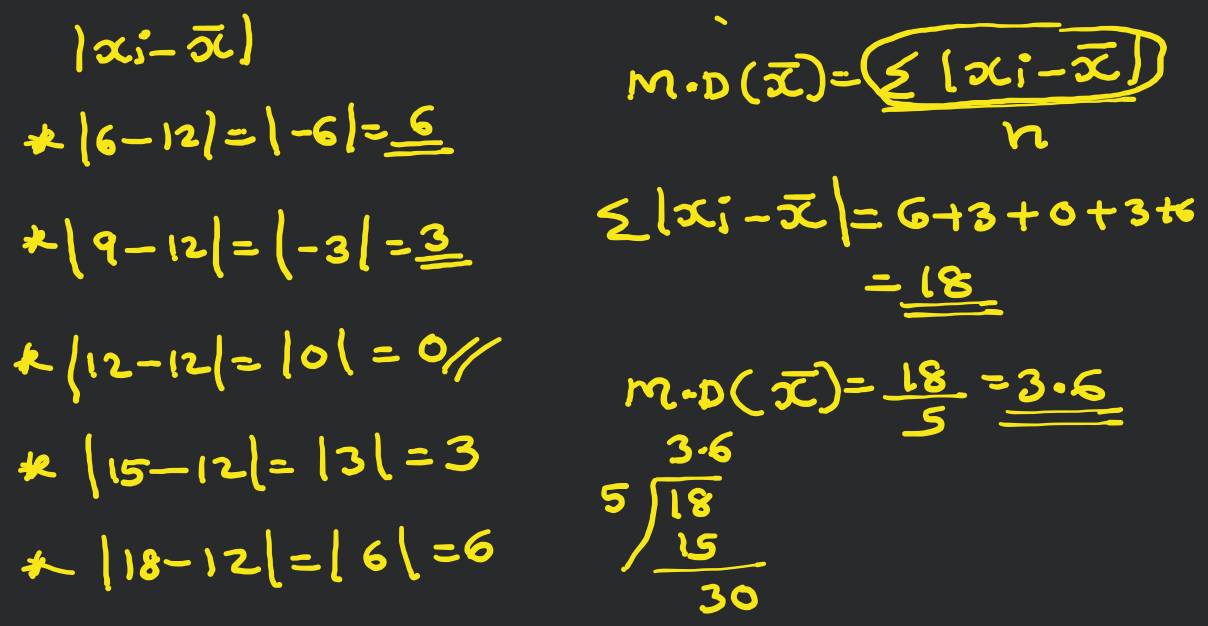 |xi-x̄|
* |6-12|=|-6|=6
* |9-12|=|-3|=3
* |12-12|=|0|=0//
* |15-12|=|3|=3
* |18-12|=|6|=6
M.D(x̄)=Σ|xi-x̄|
n
Σ|xi-x̄|=6+3+0+3+6
=18
M.D(x̄)=18/5=3.6
3.6
5 18
15
30